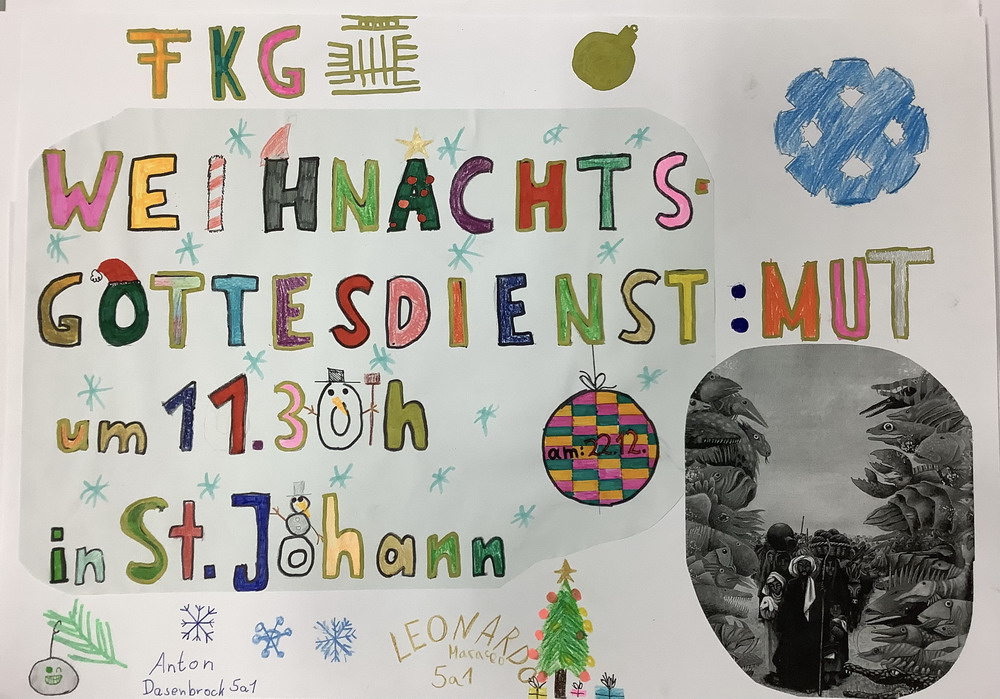 FKG
WEIHNACHTS-
GOTTESDIENST:MUT
um 11.30h
am: 22.12.
in St. Johann
Anton
Dasenbrock 5a1
LEONARD
5a1